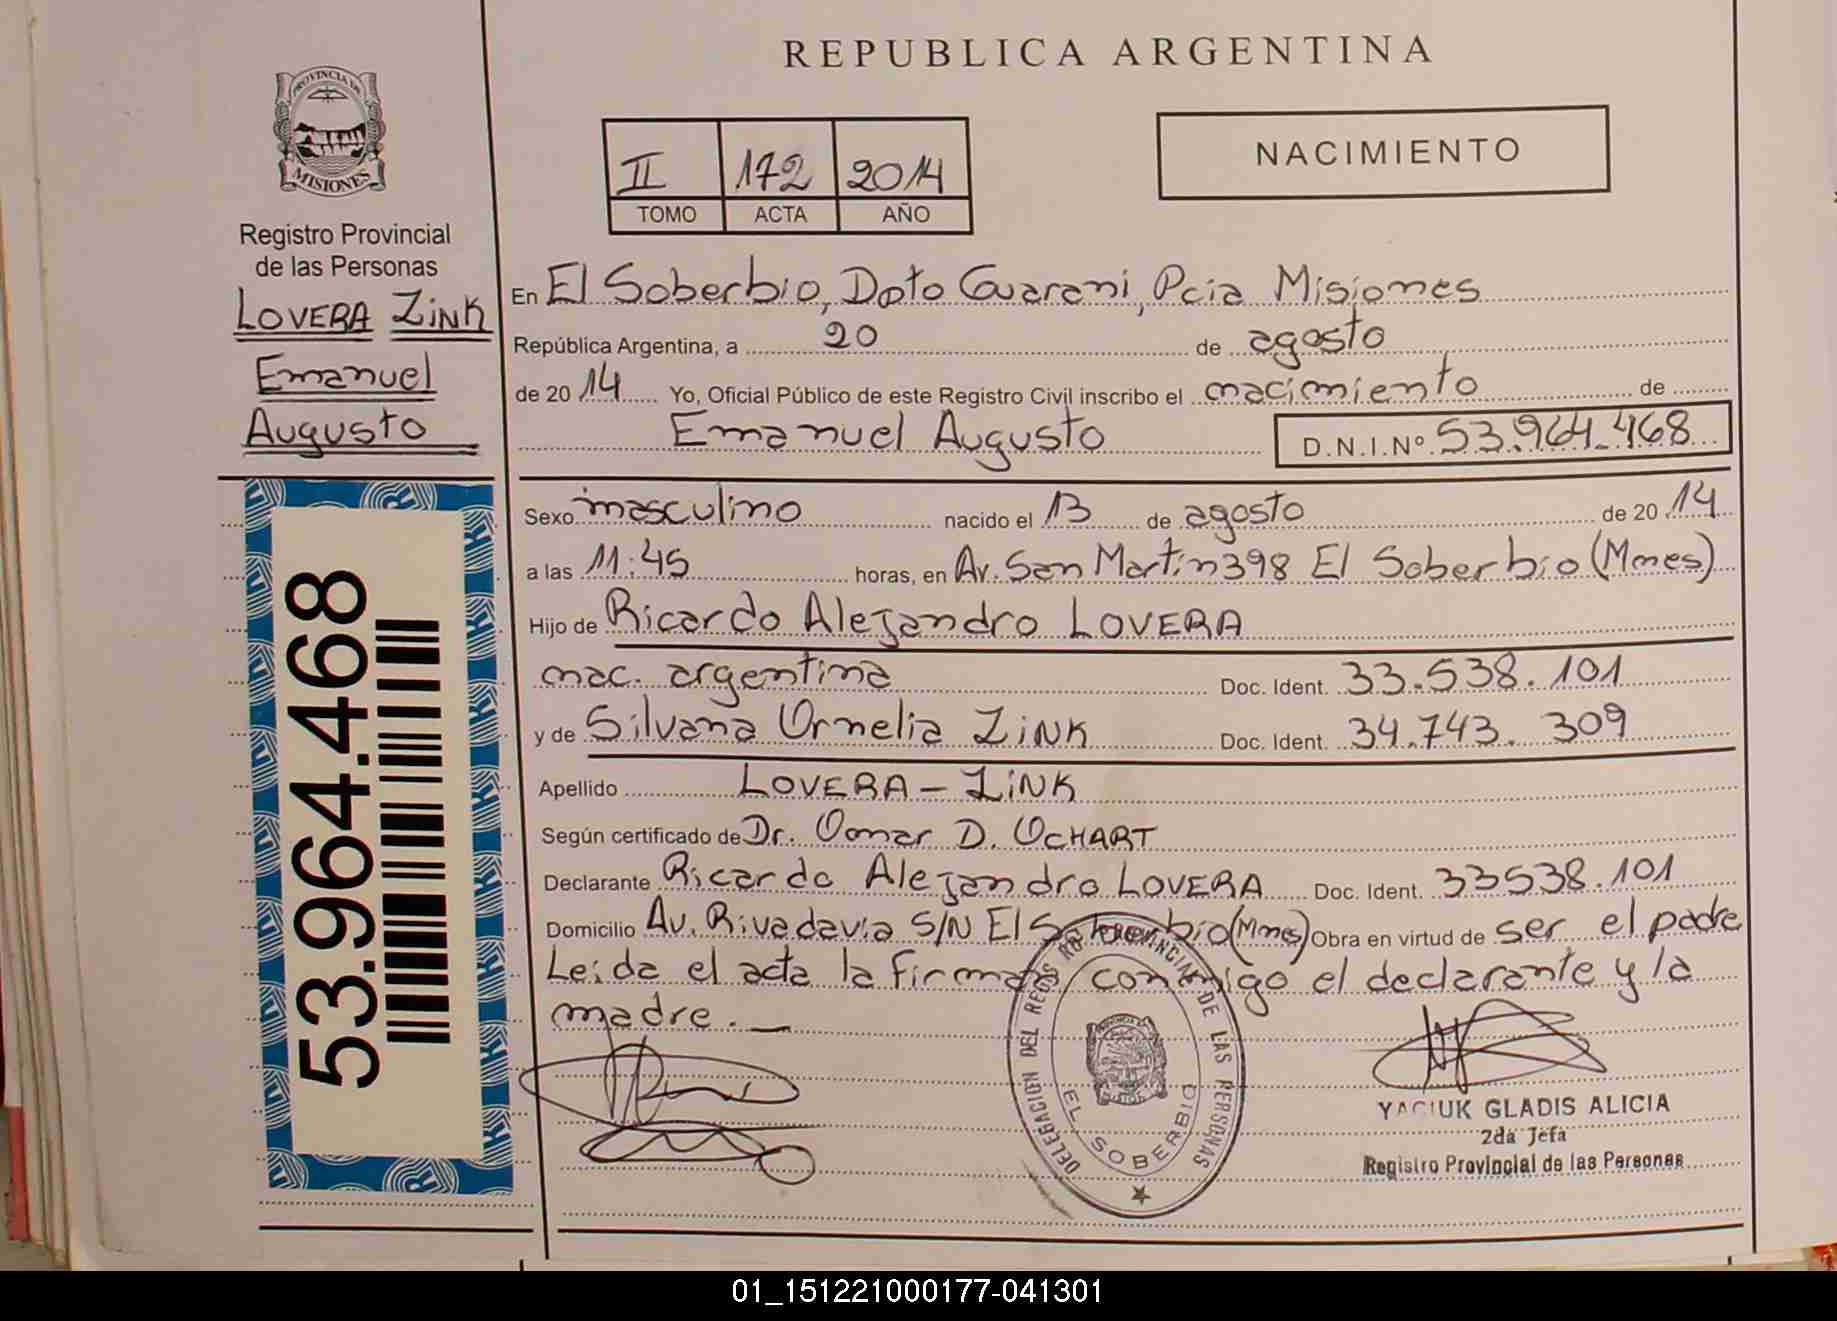 REPUBLICA ARGENTINA
PROVINCIA DE
MISIONES
Registro Provincial
de las Personas
LOVERA ZINK
Emanuel
Augusto
53.964.468
II 172 2014
TOMO ACTA AÑO
NACIMIENTO
En El Soberbio, Dpto Guarani, Pcia Misiones
República Argentina, a 20 de agosto
de 2014 Yo, Oficial Público de este Registro Civil inscribo el nacimiento de
Emanuel Augusto D.N.I.Nº 53.964.468
Sexo masculino nacido el 13 de agosto de 2014
a las 11:45 horas, en Av. San Martin 398 El Soberbio (Mnes)
Hijo de Ricardo Alejandro LOVERA
nac. argentina Doc. Ident. 33.538.101
y de Silvana Ornelia ZINK Doc. Ident. 34.743.309
Apellido LOVERA - ZINK
Según certificado de Dr. Oomar D. OCHART
Declarante Ricardo Alejandro LOVERA Doc. Ident. 33538.101
Domicilio Av. Rivadavia S/N El Soberbio (Mnes) Obra en virtud de ser el padre
Leida el acta la firman conmigo el declarante y la
madre.
DELEGACION DEL REGISTRO PROVINCIAL DE LAS PERSONAS
EL SOBERBIO
YACIUK GLADIS ALICIA
2da Jefa
Registro Provincial de las Personas
01_151221000177-041301